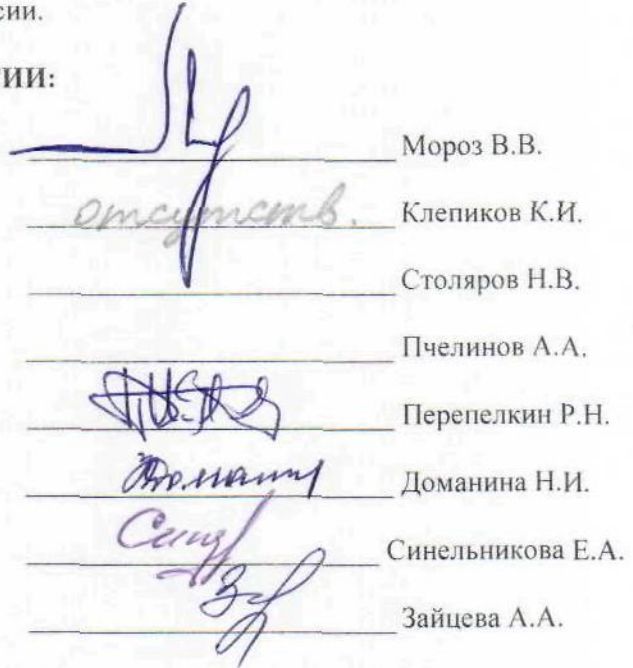 сии.
ИИ:
Мороз В.В.
отсутств. Клепиков К.И.
Столяров Н.В.
Пчелинов А.А.
Перепелкин Р.Н.
Доманина Н.И.
Синельникова Е.А.
Зайцева А.А.